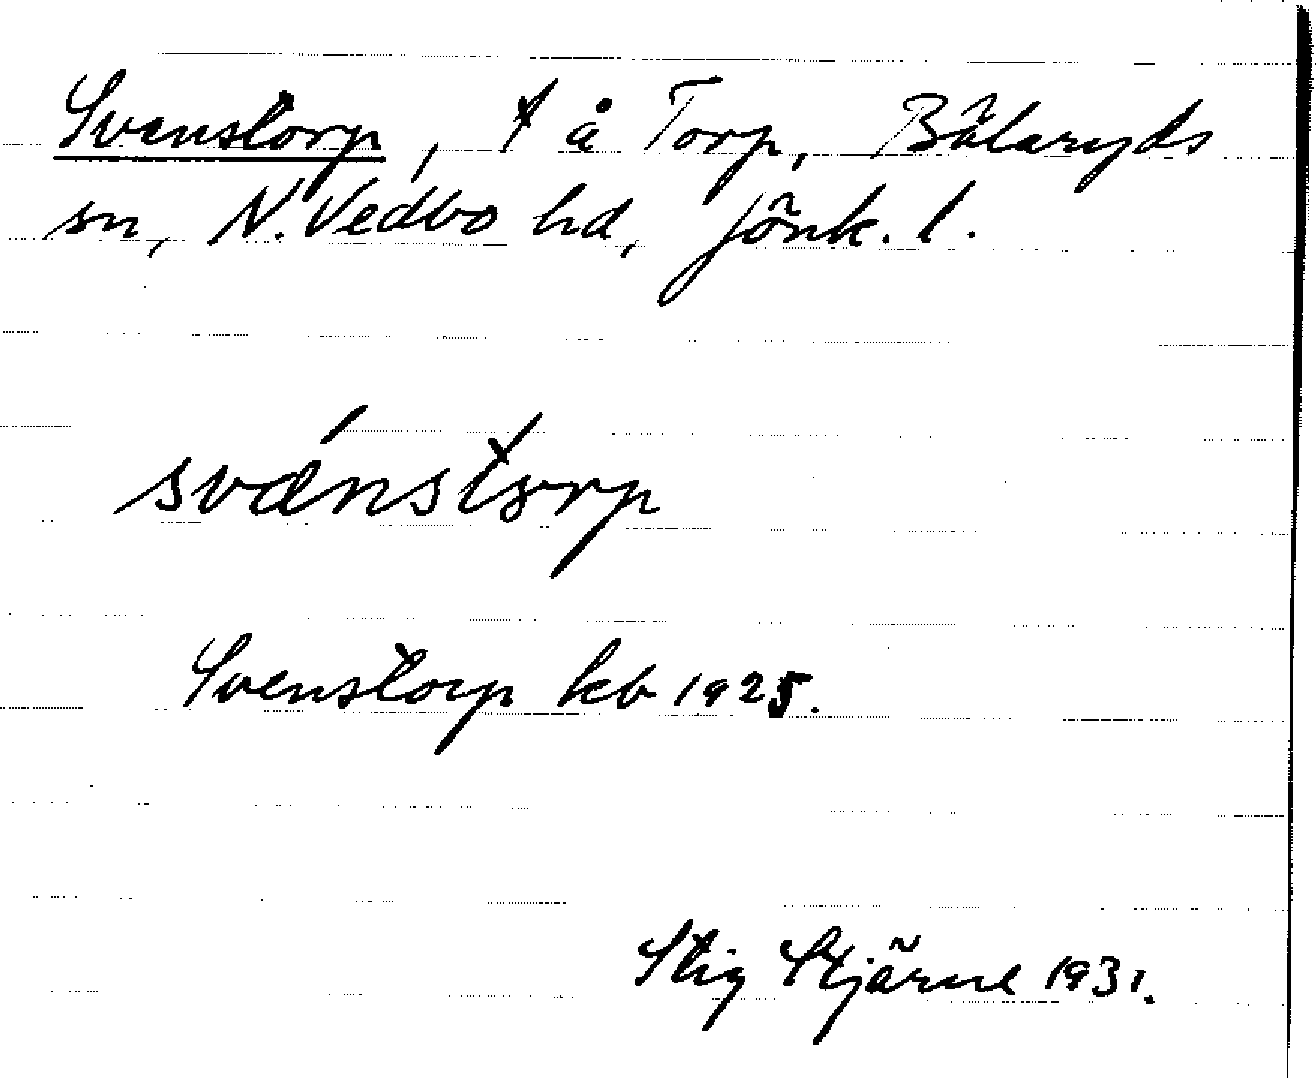 Svenstorp, t å Torp, Bälaryds
sn, N. Vedbo hd, Jönk. l.
svǽnstɔrp
Svenstorp kb 1925.
Stig Stjärne 1931.